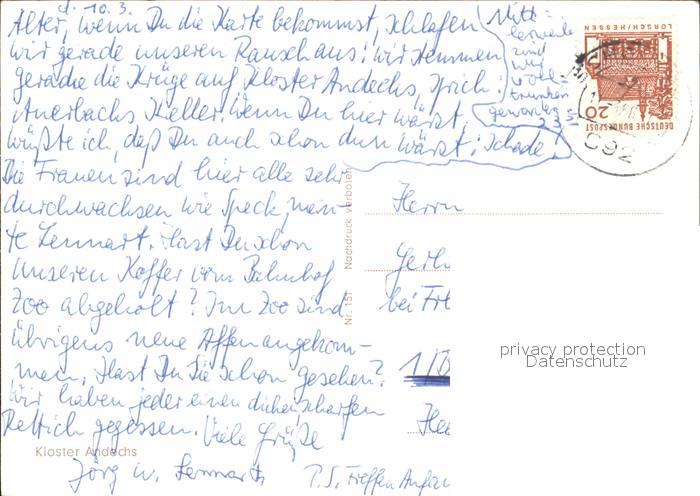 d. 10.3.
Alter, wenn Du die Karte bekommst, schlafen
wir gerade unseren Rausch aus! Wir stemmen
gerade die Krüge auf Kloster Andechs, sprich:
Auerbachs Keller. Wenn Du hier wärst,
wüßte ich, daß Du auch schon dun wärst; schade!
Die Frauen sind hier alle sehr
durchwachsen wie Speck, mein-
te Lennart. Hast Du schon
unseren Koffer vom Bahnhof
Zoo abgeholt? Im Zoo sind
übrigens neue Affen angekom-
men. Hast Du sie schon gesehen?
Wir haben jeder einen scharfen
Rettich gegessen. Viele Grüße
Jörg u. Lennart
P.S. Treffen Anfan
Mitt=
lerweile
sind
wir
voll-
trunken
geworden
Kloster Andechs
Nr. 151 Nachdruck verboten
Herrn
Gerh
bei Fr
1/B
LORSCH/HESSEN
20
DEUTSCHE BUNDESPOST
privacy protection
Datenschutz